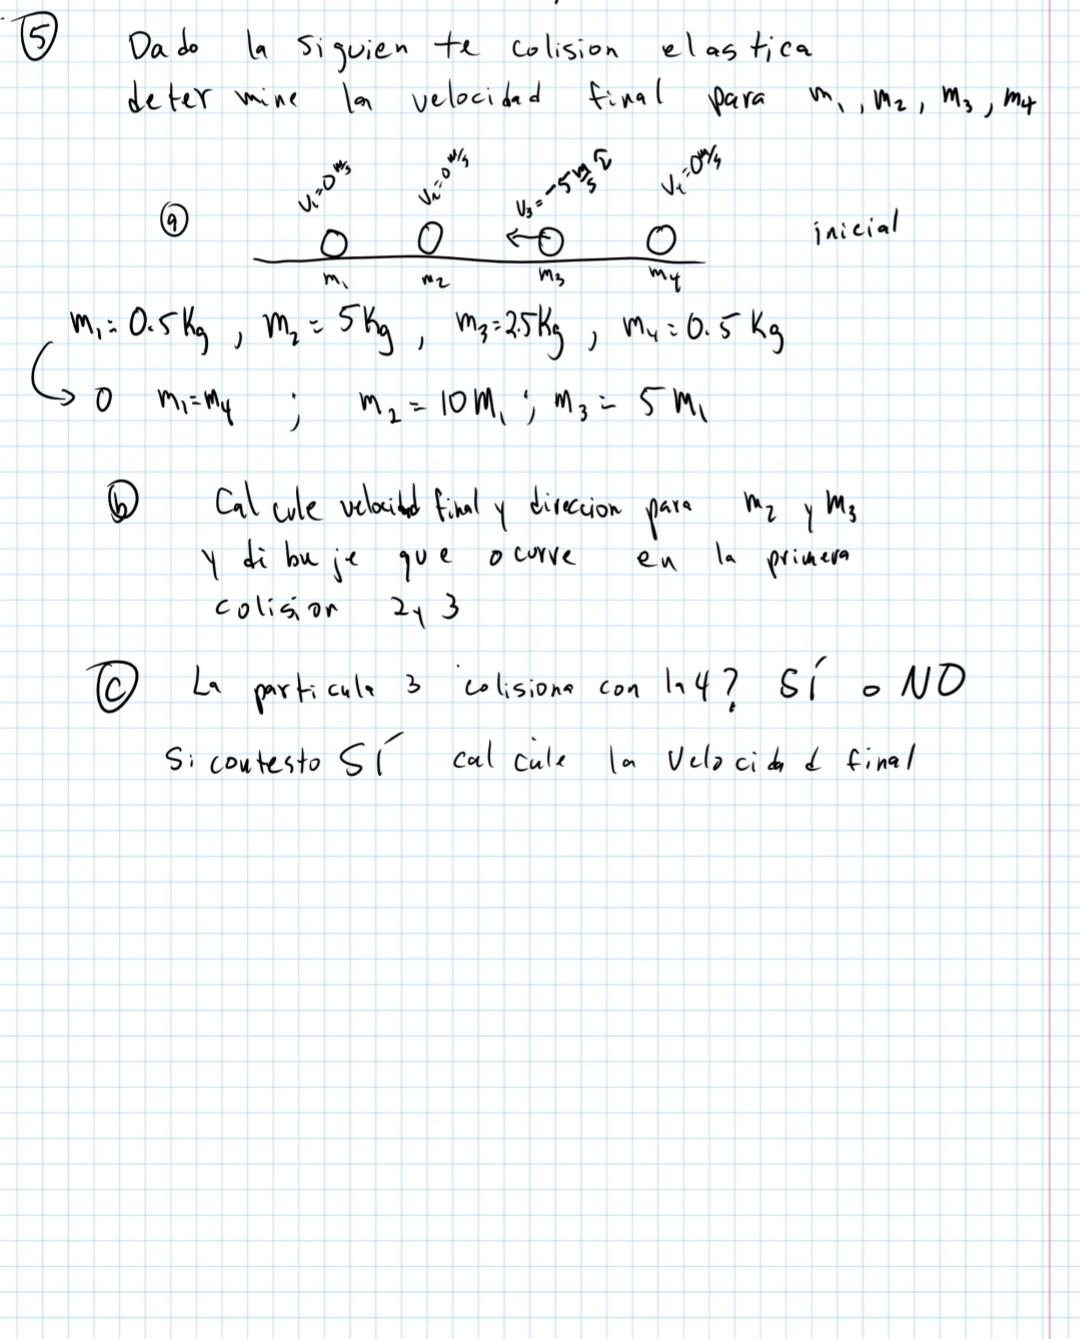 5 Dado la siguiente colision elastica
determine la velocidad final para m1, m2, m3, m4
V1=0 m/s V2=0 m/s V3=-5 m/s î V4=0 m/s
a inicial
m1 m2 m3 m4
m1=0.5Kg, m2=5Kg, m3=2.5Kg, m4=0.5Kg
o m1=m4 ; m2=10m1 ; m3=5m1
b Calcule velocidad final y direccion para m2 y m3
y dibuje que ocurre en la primera
colision 2y3
c La particula 3 colisiona con la 4? SÍ o NO
Si contesto SÍ calcule la velocidad final